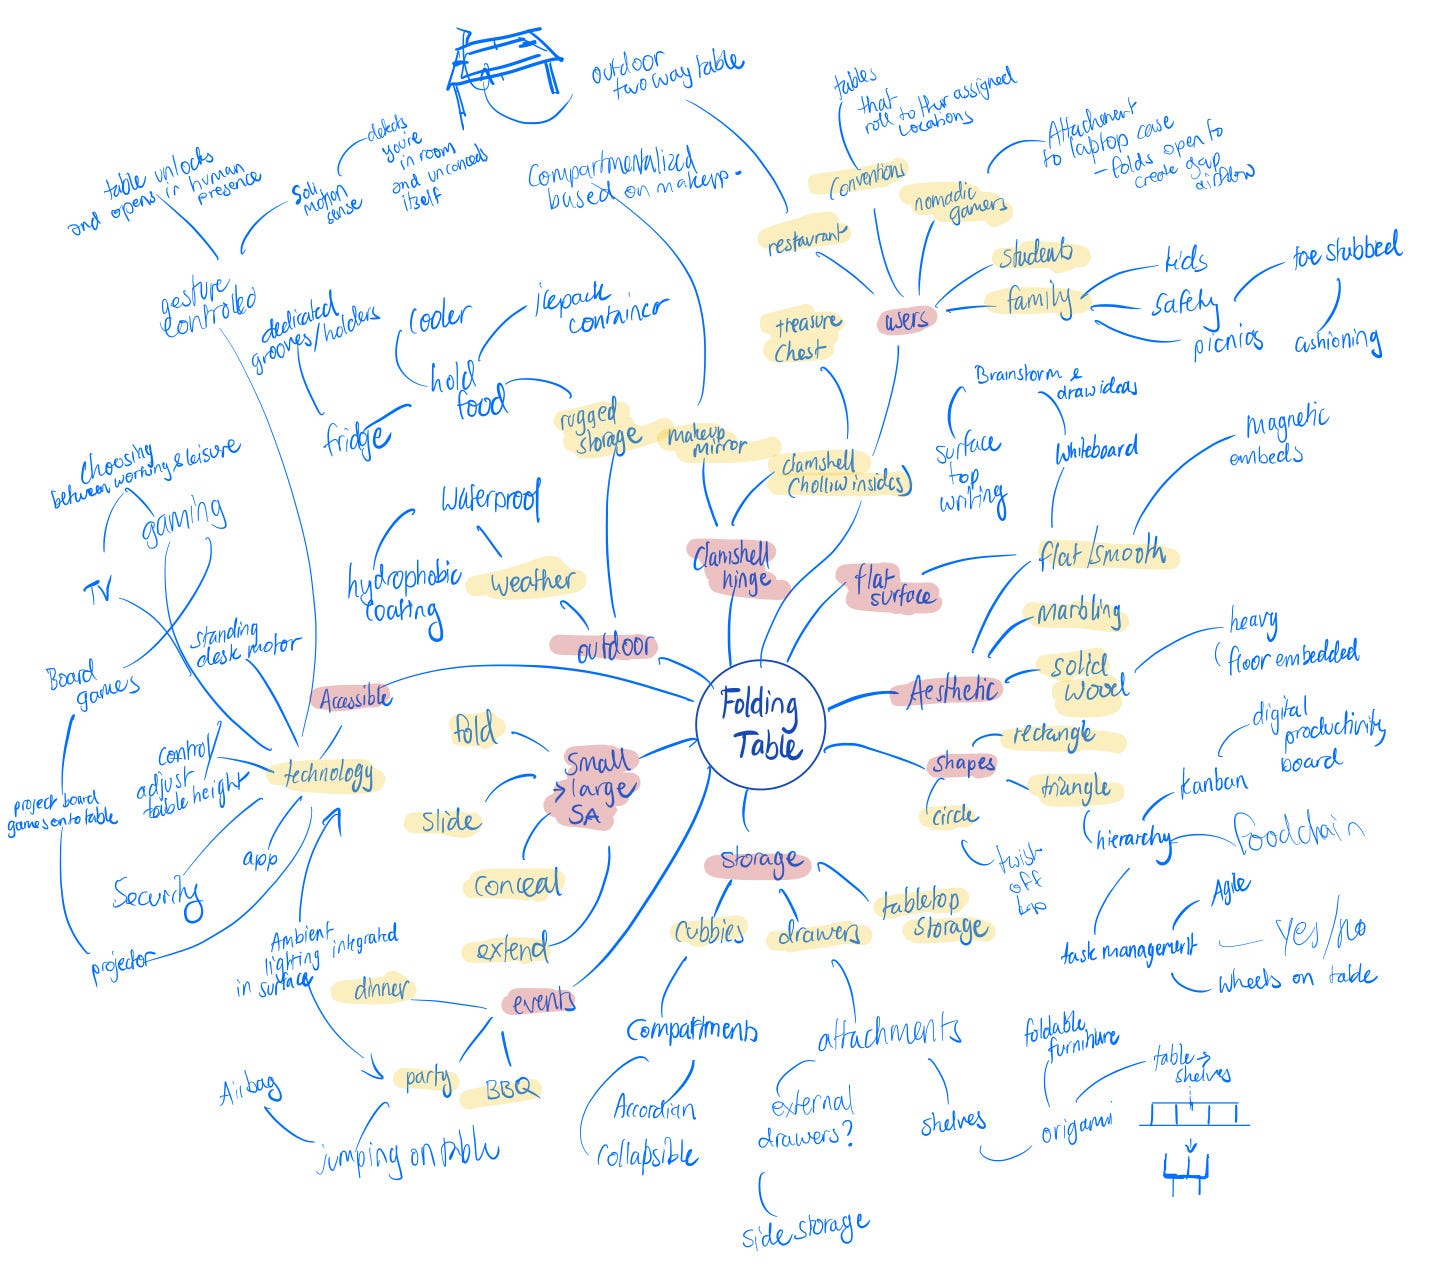 outdoor
two way table
tables
that
roll to thur assigned
locations
Attachment
to laptop case
- folds open to
create gap
airflow
detects
you're
in room
and unconceals
itself
table unlocks
and opens in human
presence
motion
sense
Compartmentalized
based on makeup.
Conventions
nomadic
gamers
restaurant
students
family
kids
safety
picnics
toe stubbed
cushioning
users
treasure
Chest
gesture
controlled
dedicated
grooves/holders
Cooler
icepack
container
hold
food
fridge
rugged
storage
makeup
mirror
clamshell
(holliw insides)
Brainstorm &
draw ideas
surface
top
writing
Whiteboard
magnetic
embeds
Choosing
between working & leisure
gaming
TV
Waterproof
hydrophobic
coating
weather
outdoor
Clamshell
hinge
flat
surface
flat/smooth
marbling
solid
wood
heavy
floor embedded
Aesthetic
standing
desk motor
Board
games
Accessible
Folding
Table
fold
Small
→ large
SA
slide
conceal
extend
shapes
rectangle
triangle
circle
twist
off
hierarchy
kanban
digital
productivity
board
foodchain
task management
Agile
Yes/no
wheels on table
control/
adjust
table height
technology
project board
games onto table
app
Security
projector
Ambient
lighting integrated
in surface
storage
cubbies
drawers
tabletop
storage
dinner
events
party
BBQ
Airbag
jumping on table
Compartments
Accordian
collapsible
attachments
external
drawers?
side storage
shelves
origami
foldable
furniture
table →
shelves